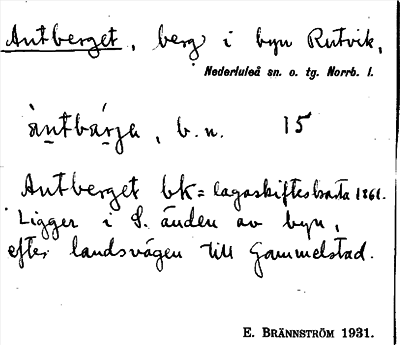 Antberget, berg i byn Rutvik,
Nederluleå sn. o. tg. Norrb. l.
àntbárja, b. n. 15
Antberget bk = lagaskifteskarta 1861.
Ligger i S. änden av byn,
efter landsvägen till Gammelstad.
E. BRÄNNSTRÖM 1931.